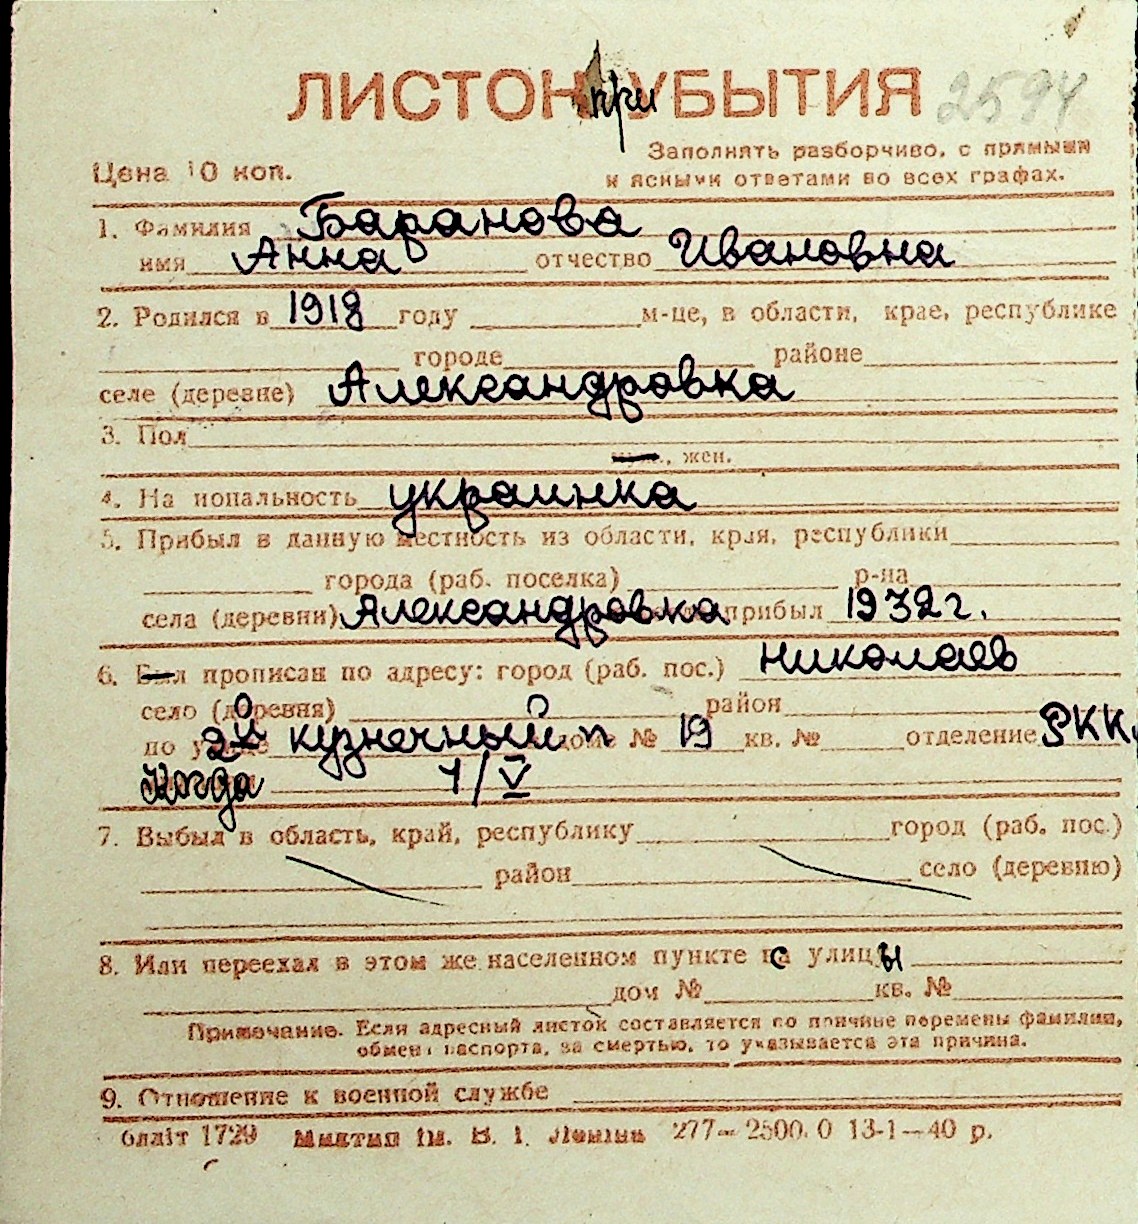 ЛИСТОК при УБЫТИЯ 2594
Заполнять разборчиво, с прямыми
Цена 10 коп. и ясными ответами во всех графах.
1. Фамилия Баранова
имя Анна отчество Ивановна
2. Родился в 1918 году м-це, в области, крае, республике
городе районе
селе (деревне) Александровка
3. Пол
, жен.
4. На иопальность украинка
5. Прибыл в данную местность из области, края, республики
города (раб. поселка) р-на
села (деревни) Александровка прибыл 1932 г.
6. Был прописан по адресу: город (раб. пос.) Николаев
село (деревня) район
по улице 2й кузнечный п доме № 19 кв. № отделение РКК
Когда 1/V
7. Выбыл в область, край, республику город (раб. пос.)
район село (деревню)
8. Или переехал в этом же населенном пункте с улицы
дом № кв. №
Примечание. Если адресный листок составляется по причине перемены фамилии,
обмена паспорта, за смертью, то указывается эта причина.
9. Отношение к военной службе
блліт 1729 им. В. І. Леніна 277—2500.0 13-1—40 р.